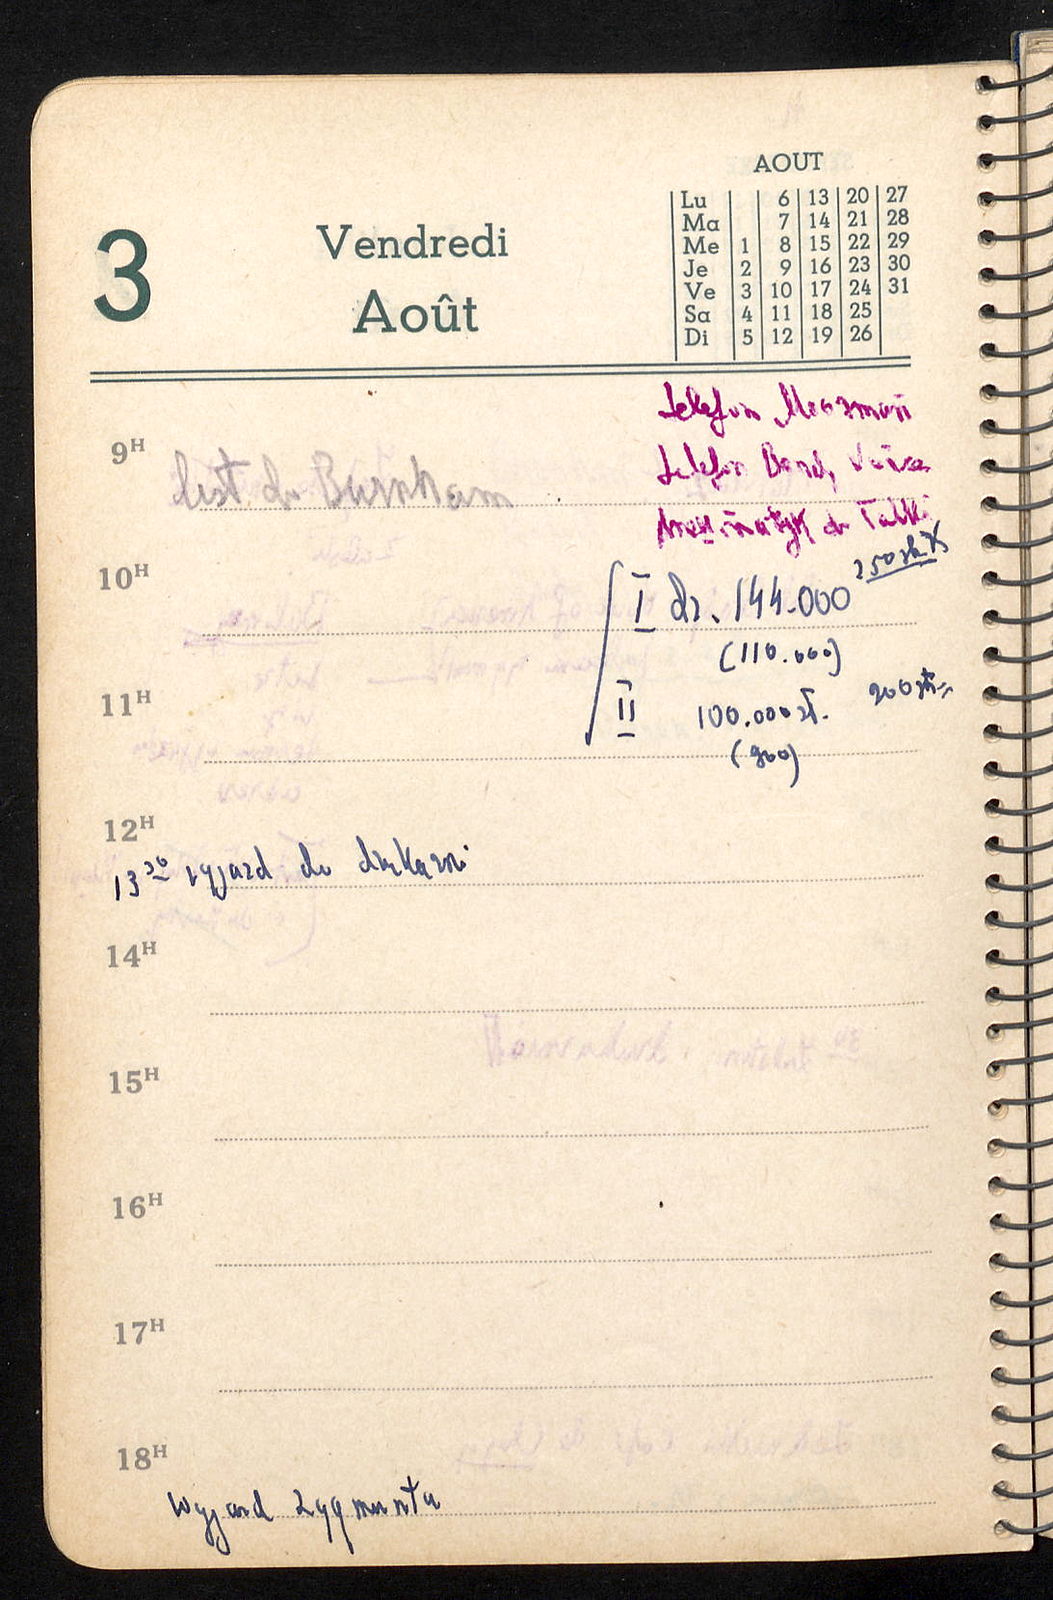 AOUT
3 Vendredi
Août
Lu 6 13 20 27
Ma 7 14 21 28
Me 1 8 15 22 29
Je 2 9 16 23 30
Ve 3 10 17 24 31
Sa 4 11 18 25
Di 5 12 19 26
telefon
telefon
do
9H
list do Burnham
10H
I dr. 144.000
(110.000)
11H
II 100.000 zł.
(900)
12H
13 30 wyjazd do drukarni
14H
15H
16H
17H
18H
wyjazd Zygmunta